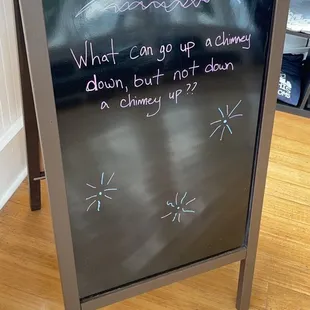 What can go up a chimney
down, but not down
a chimney up??